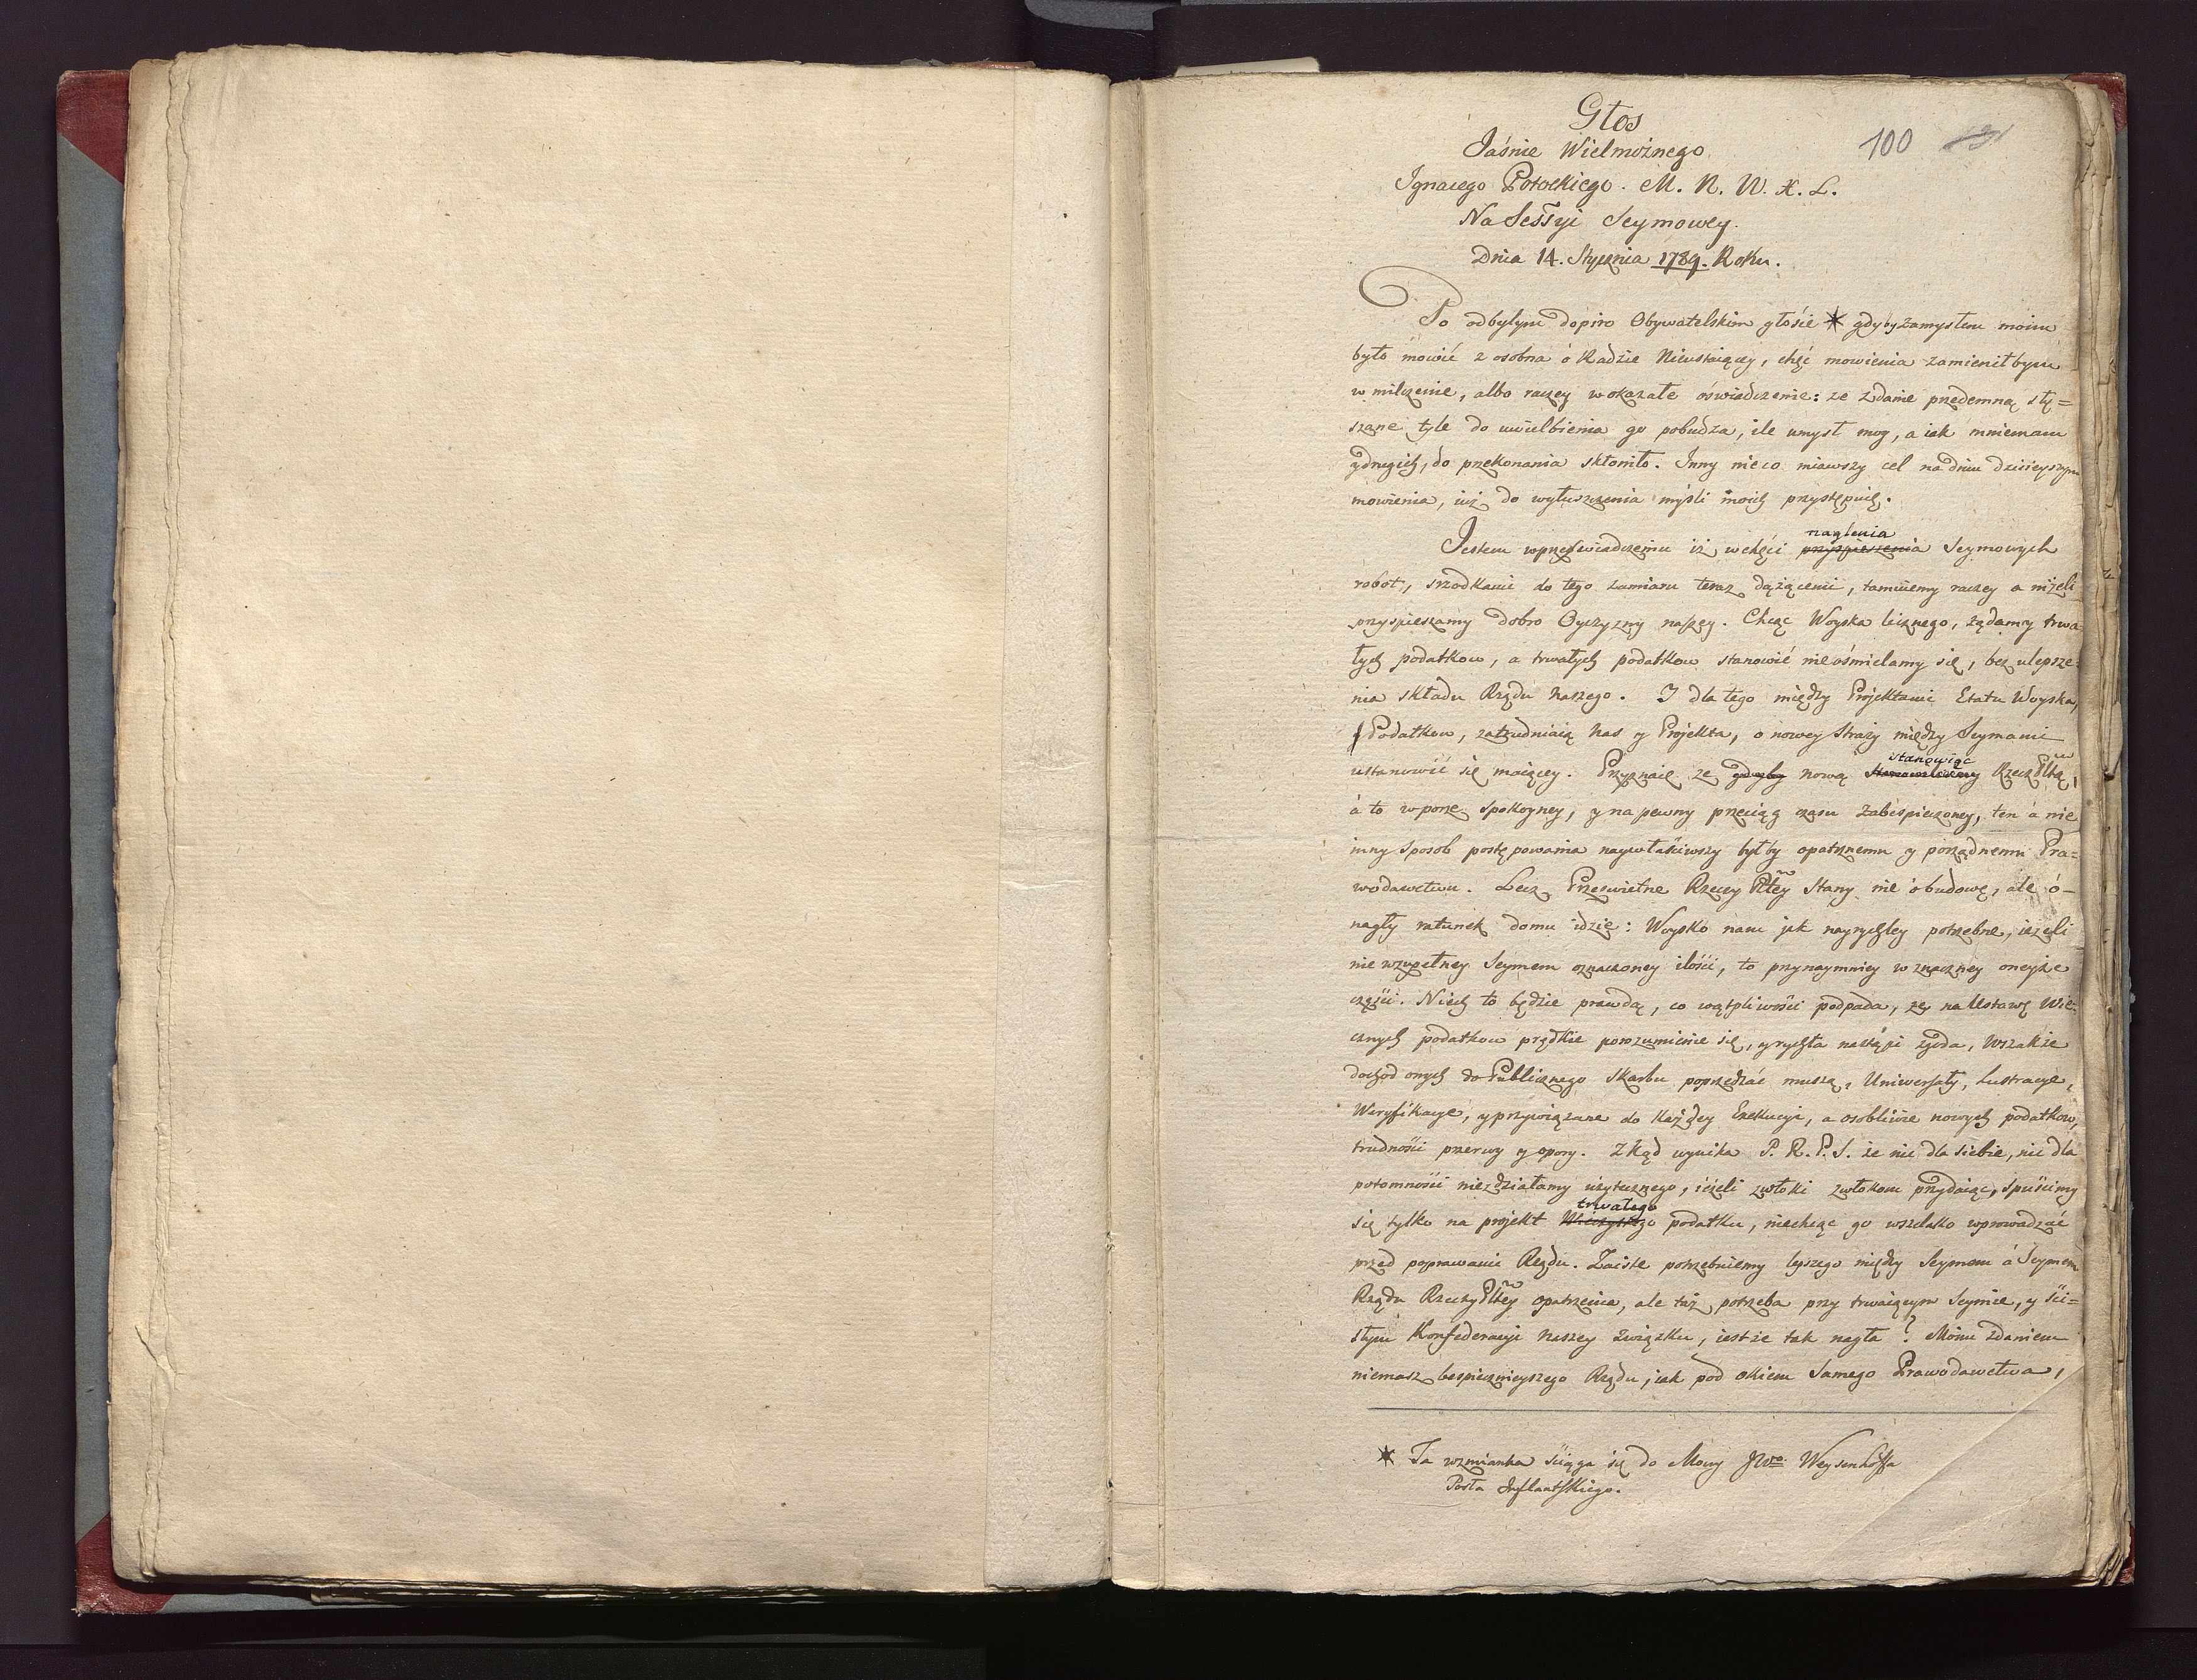 Głos
100
Jaśnie Wielmożnego
Ignacego Potockiego. M. N. W. X. L.
Na Sessyi Seymowey.
Dnia 14. Stycznia 1789. Roku.
Po odbytym dopiro Obywatelskim głosie * gdyby zamysłem moim
było mowić z osobna o Radzie Nieustaiącey, chęć mowienia zamieniłbym
w milczenie, albo raczey w okazałe oświadczenie: ze zdanie przedemną sły=
szane tyle do uwielbienia go pobudza, ile umysł moy, a iak mniemam
y drugich, do przekonania skłoniło. Inny nieco miawszy cel na dniu dzisieyszym
mowienia, iuż do wyłuszczenia myśli moich przystępuię.
naglenia
Jestem w przeświadczeniu iż w chęci przyspieszenia Seymowych
robot, srzodkami do tego zamiaru teraz dążącemi, tamuiemy raczey a niżeli
przyspieszamy dobro Oyczyzny naszey. Chcąc Woyska licznego, żądamy trwa
łych podatkow, a trwałych podatkow stanowić nieośmielamy się, bez ulepsze=
nia składu Rządu naszego. I dla tego między Projektami Etatu Woyska,
Podatkow, zatrudniaią nas y Projekta, o nowey Straży między Seymami
stanowiąc
ustanowić się maiącey. Przyznaię ze gdyby nową Rzeczpltą,
á to w porze spokoyney, y na pewny przeciąg czasu zabespieczoney, ten á nie
inny sposob postępowania naywłaściwszy byłby opatrznemu y porządnemu Pra=
wodawctwu. Lecz Prześwietne Rzeczy Pltey Stany nie o budowę, ale ó-
nagły ratunek domu idzie: Woysko nam jak nayrychley potrzebne, ieżeli
nie w zupełney Seymem oznaczoney ilości, to przynaymniey w znaczney oneyże
części. Niech to będzie prawdą, co wątpliwości podpada, że na Ustawę Wie=
cznych podatkow prędkie porozumienie się, y rychła nastąpi zgoda, wszakże
dochod onych do Publicznego Skarbu poprzedzać muszą, Uniwersały, Lustracye,
Weryfikacye, y przywiązane do każdey Exekucyi, a osobliwie nowych podatkow,
trudności przerwy y opory. Zkąd wynika P. R. P. S. że nic dla siebie, nic dla
potomności niezdziałamy użytecznego, ieżeli zwłoki zwłokom przydaiąc, spuścimy
trwałego
się tylko na projekt Wieczystego podatku, niechcąc go wszelako wprowadzać
przed poprawami Rządu. Zaiste potrzebuiemy lepszego między Seymem á Seymem
Rządu Rzeczy Pltey opatrzenia, ale taż potrzeba przy trwaiącym Seymie, y ści=
słym Konfederacyi naszey związku, iestże tak nagła? Moim zdaniem
niemasz bespiecznieyszego Rządu, iak pod okiem samego Prawodawctwa,
* Ta wzmianka ściąga się do Mowy JWgo Weysenhoffa
Posła Inflantskiego.